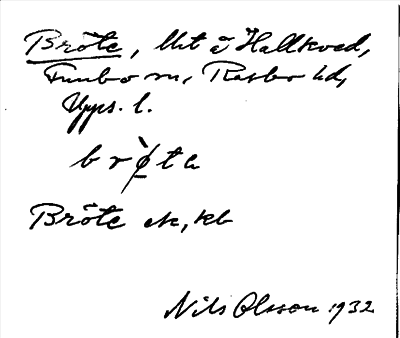 Bröte, lht å Hallkved,
Funbo sn, Rasbo hd,
Upps. l.
br ǿ̀ta
Bröte ek, kb
Nils Olsson 1932